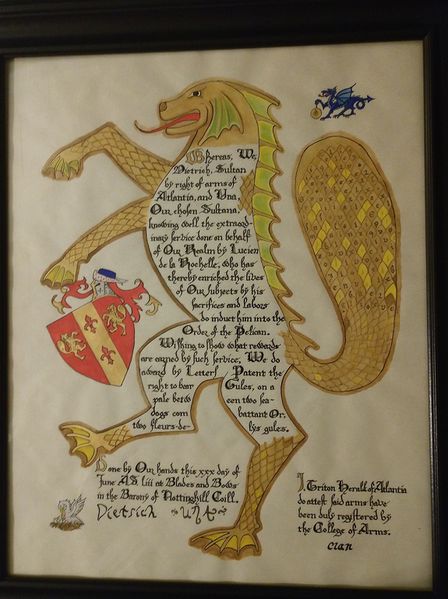 Whereas, We,
Dietrich, Sultan
by right of arms of
Atlantia, and Una,
Our chosen Sultana,
knowing well the extraord-
inary service done on behalf
of Our Realm by Lucien
de la Rochelle, who has
thereby enriched the lives
of Our subjects by his
sacrifices and labors
do induct him into the
Order of the Pelican.
Wishing to show what rewards
are earned by such service, We do
award by Letters Patent the
right to bear Gules, on a
pale betw een two sea-
dogs com battant Or,
two fleurs-de- lys gules.
Done by Our hands this xxx day of
June AS liii at Blades and Bows
in the Barony of Nottinghill Coill.
Dietrich Una
I, Triton Herald of Atlantia
do attest said arms have
been duly registered by
the College of Arms.
cian